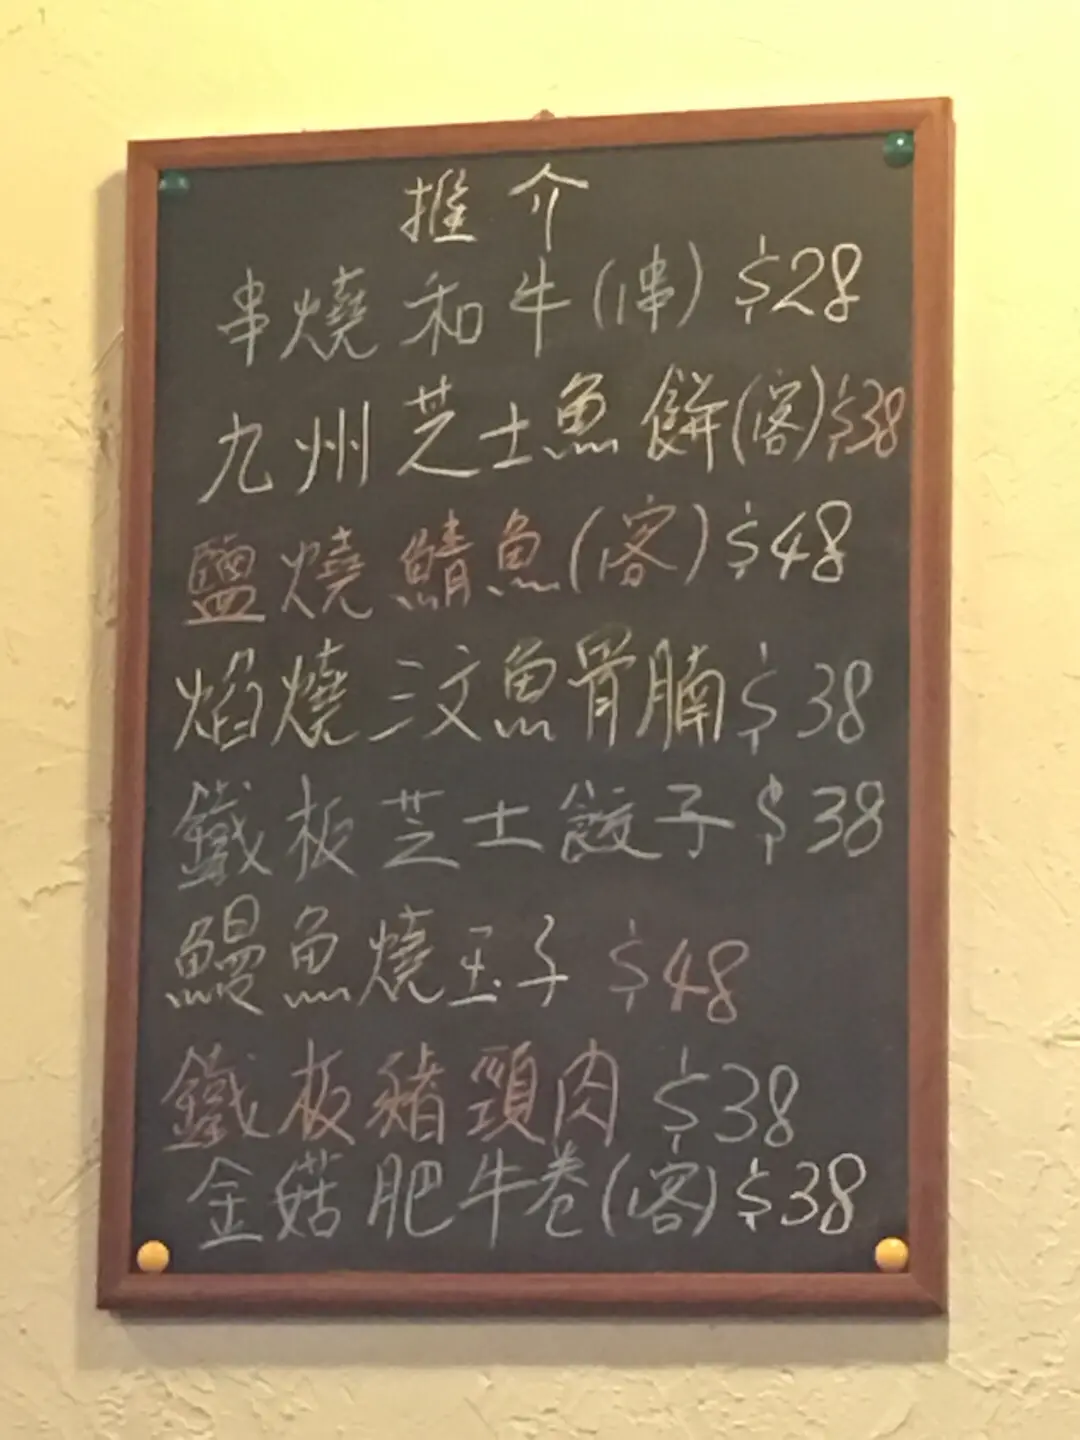 推介
串燒和牛(1串) $28
九州芝士魚餅(客)$38
鹽燒鯖魚(客)$48
焰燒三文魚骨腩$38
鐵板芝士餃子$38
鰻魚燒玉子 $48
鐵板豬頸肉 $38
金菇肥牛卷(客)$38